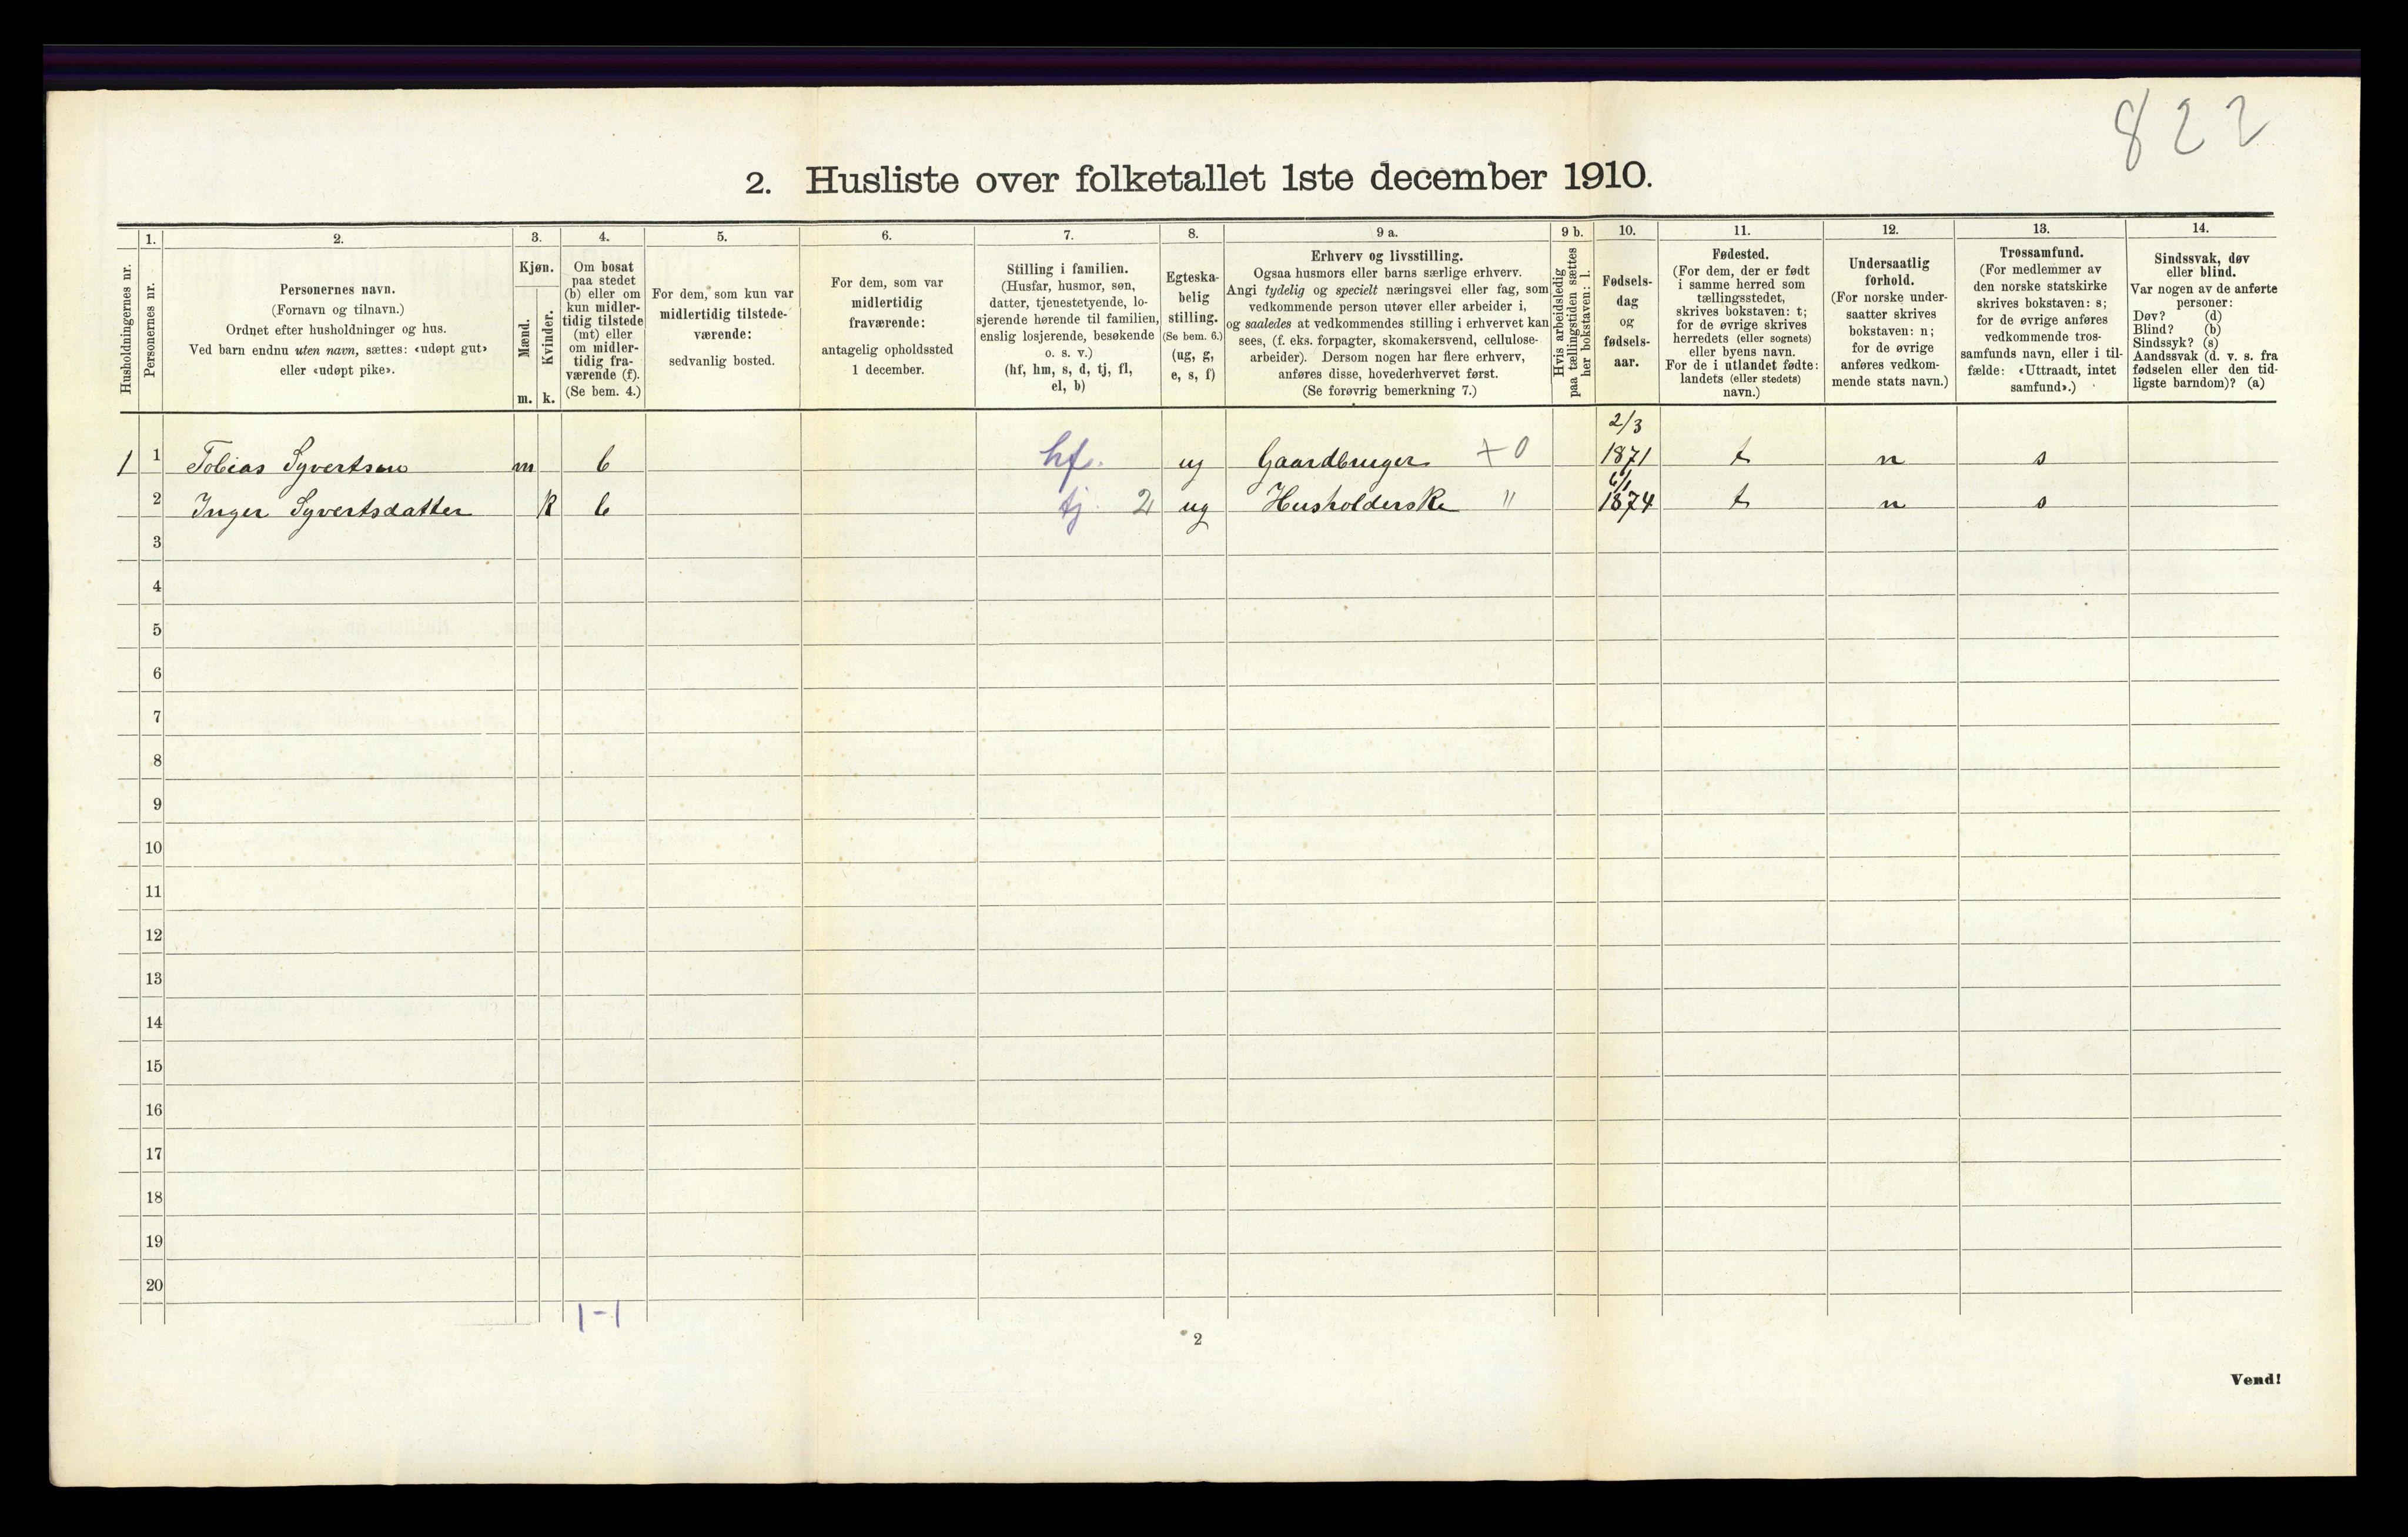 822
2. Husliste over folketallet 1ste december 1910.
Husholdningernes nr.
1.
Personernes nr.
2.
Personernes navn.
(Fornavn og tilnavn.)
Ordnet efter husholdninger og hus.
Ved barn endnu uten navn, sættes: «udøpt gut»
eller «udøpt pike».
3.
Kjøn.
Mænd.
Kvinder.
m. k.
4.
Om bosat
paa stedet
(b) eller om
kun midler-
tidig tilstede
(mt) eller
om midler-
tidig fra-
værende (f).
(Se bem. 4.)
5.
For dem, som kun var
midlertidig tilstede-
værende:
sedvanlig bosted.
6.
For dem, som var
midlertidig
fraværende:
antagelig opholdssted
1 december.
7.
Stilling i familien.
(Husfar, husmor, søn,
datter, tjenestetyende, lo-
sjerende hørende til familien,
enslig losjerende, besøkende
o. s. v.)
(hf, hm, s, d, tj, fl,
el, b)
8.
Egteska-
belig
stilling.
(Se bem. 6.)
(ug, g,
e, s, f)
9 a.
Erhverv og livsstilling.
Ogsaa husmors eller barns særlige erhverv.
Angi tydelig og specielt næringsvei eller fag, som
vedkommende person utøver eller arbeider i,
og saaledes at vedkommendes stilling i erhvervet kan
sees, (f. eks. forpagter, skomakersvend, cellulose-
arbeider). Dersom nogen har flere erhverv,
anføres disse, hovederhvervet først.
(Se forøvrig bemerkning 7.)
9 b.
Hvis arbeidsledig
paa tællingstiden sættes
her bokstaven: l.
10.
Fødsels-
dag
og
fødsels-
aar.
11.
Fødested.
(For dem, der er født
i samme herred som
tællingsstedet,
skrives bokstaven: t;
for de øvrige skrives
herredets (eller sognets)
eller byens navn.
For de i utlandet fødte:
landets (eller stedets)
navn.)
12.
Undersaatlig
forhold.
(For norske under-
saatter skrives
bokstaven: n;
for de øvrige
anføres vedkom-
mende stats navn.)
13.
Trossamfund.
(For medlemmer av
den norske statskirke
skrives bokstaven: s;
for de øvrige anføres
vedkommende tros-
samfunds navn, eller i til-
fælde: «Uttraadt, intet
samfund».)
14.
Sindssvak, døv
eller blind.
Var nogen av de anførte
personer:
Døv? (d)
Blind? (b)
Sindssyk? (s)
Aandssvak (d. v. s. fra
fødselen eller den tid-
ligste barndom)? (a)
2/3
1 1 Tobias Syvertsen m b hf. ug Gaardbruger + 0 1871 t n s
6/1
2 Inger Syvertsdatter k b tj 2 ug Husholderske " 1874 t n s
3
4
5
6
7
8
9
10
11
12
13
14
15
16
17
18
19
20
1-1
2
Vend!